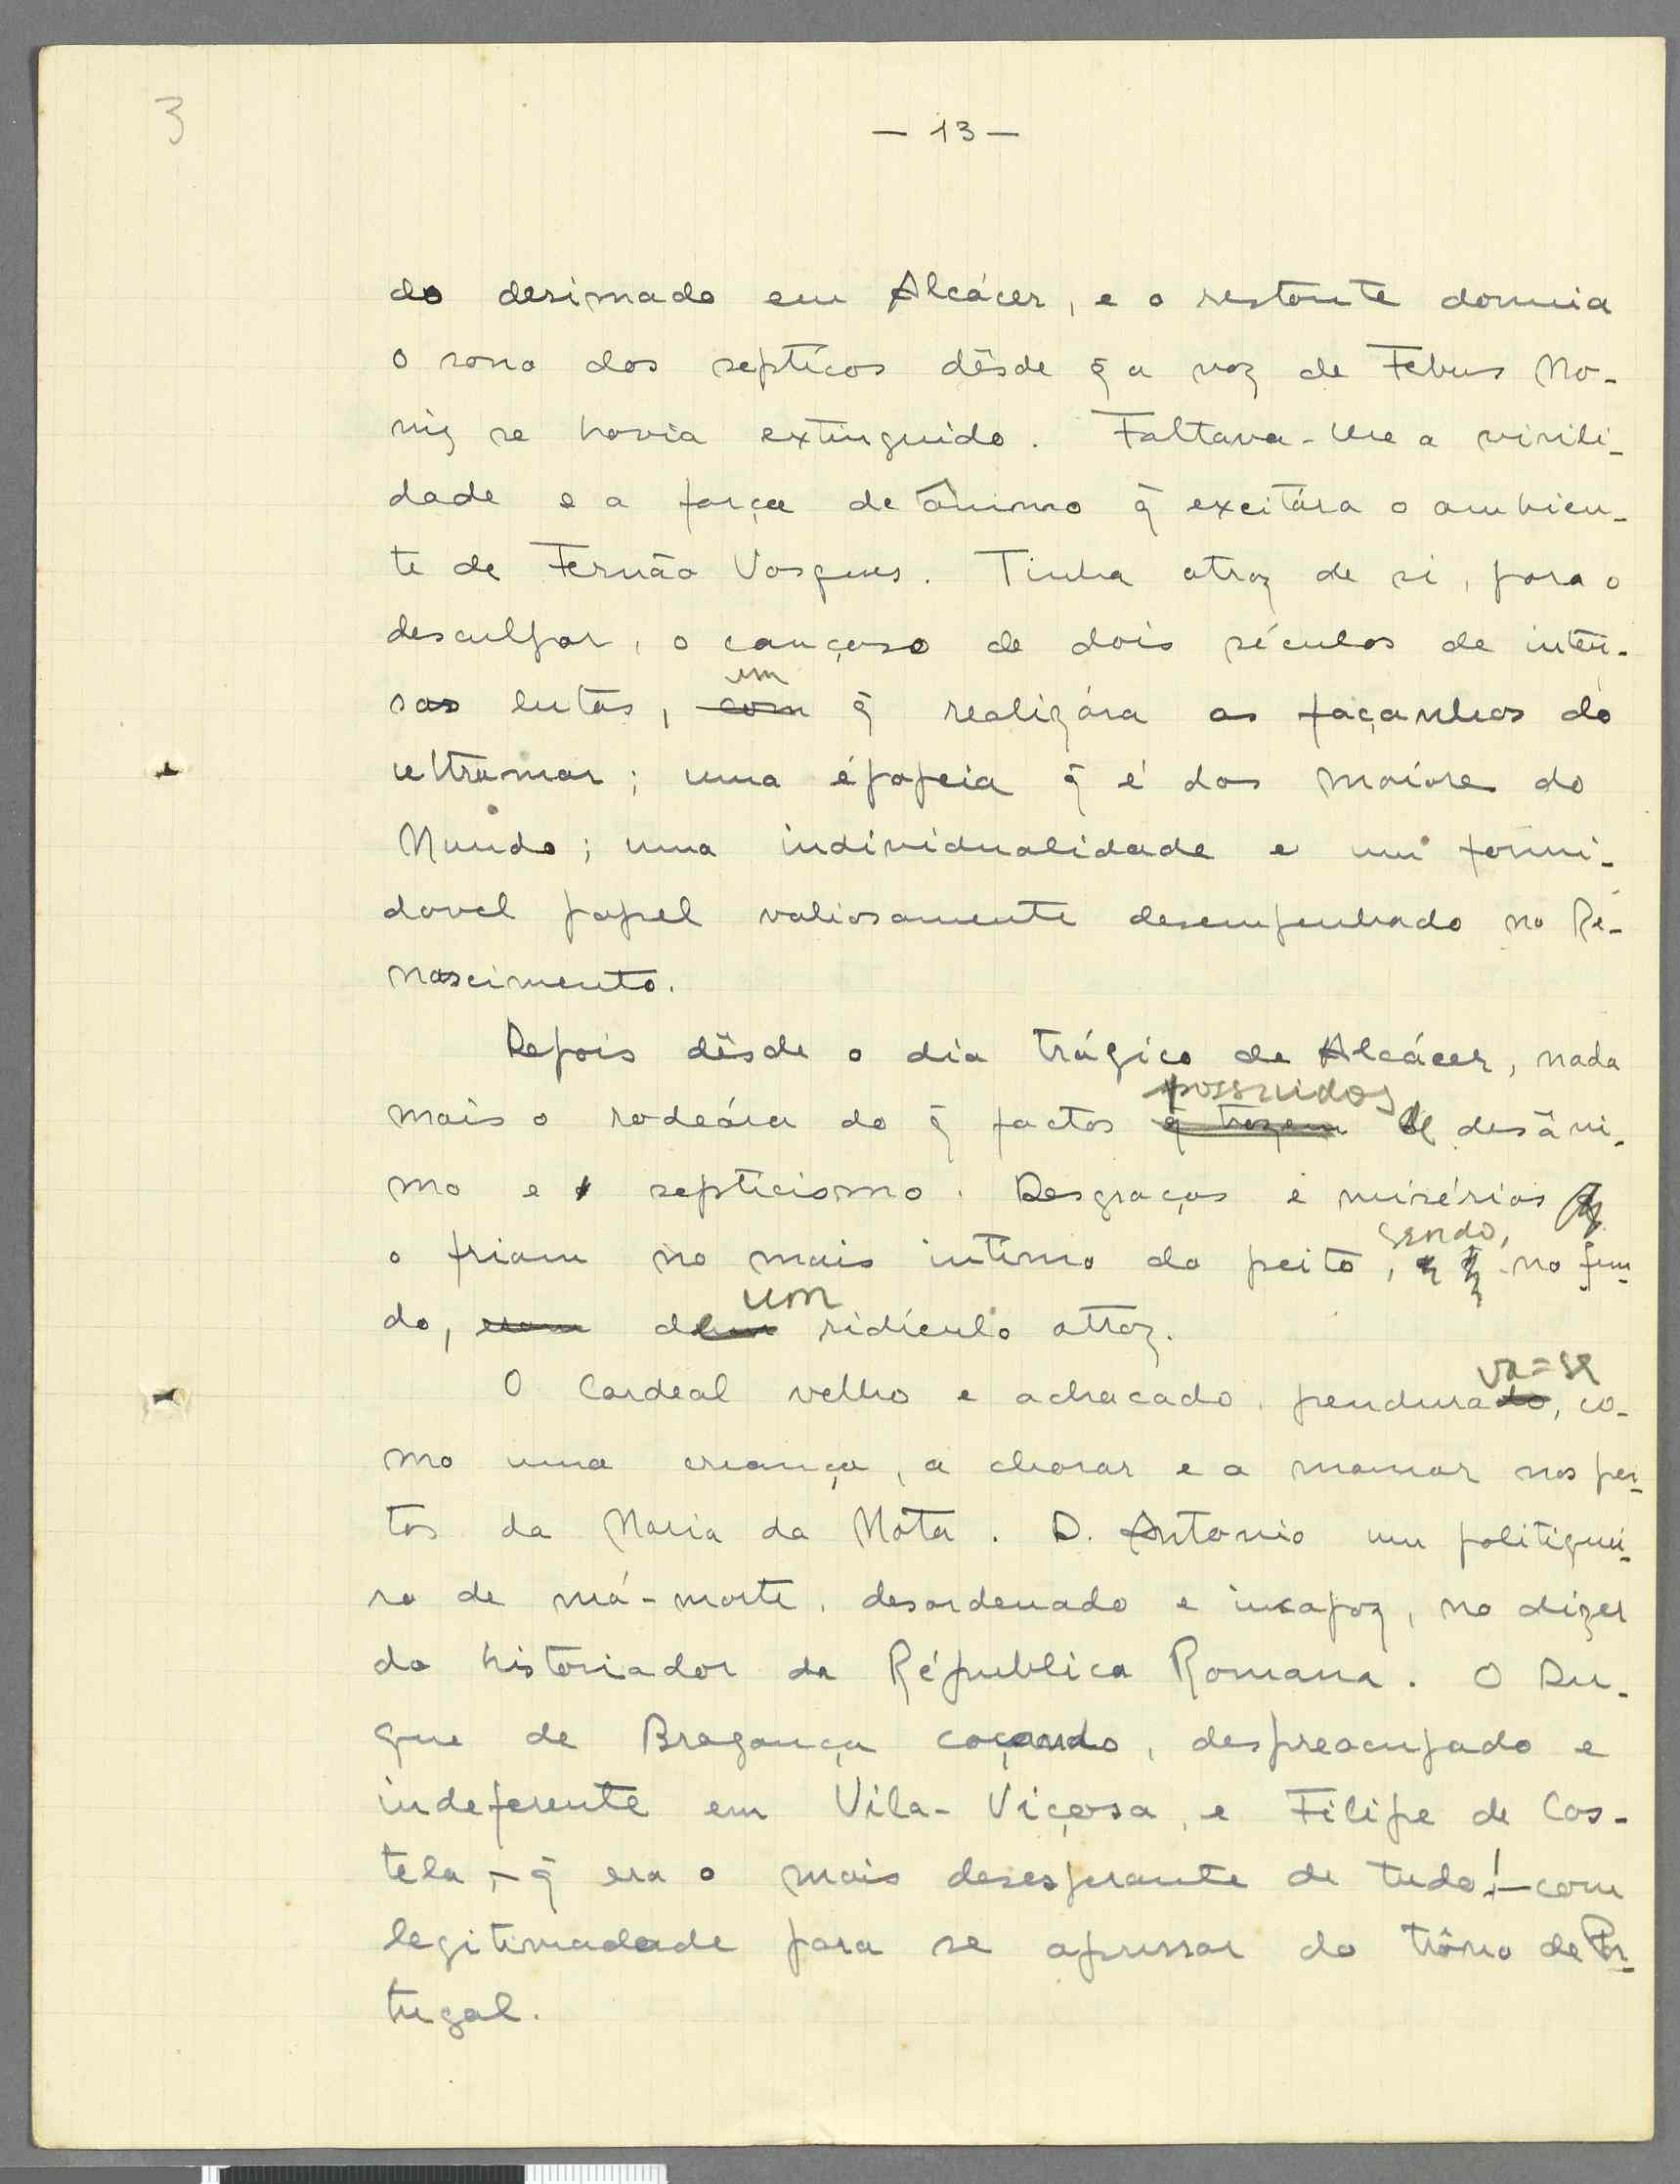 3
— 13 —
do desimado em Alcácer, e o restante dormia
o sono dos septícos dêsde q̃ a voz de Febus Mo-
niz se havia extinguido. Faltava-lhe a virili-
dade e a força de ânimo q̃ excitára o ambien-
te de Fernão Vasques. Tinha atraz de si, para o
desculpar, o cançaso de dois séculos de inten-
um
sas lutas, com q̃ realizára as façanhas do
ultramar; uma épopeia q̃ é das maiores do
Mundo; uma individualidade e um formi-
davel papel valiosamente desempenhado no Re-
nascimento.
Depois dêsde o dia trágico de Alcácer, nada
possuidos
mais o rodeára do q̃ factos q̃ trazem de desâni-
mo e septicismo. Desgraças e misérias q̃
sendo,
o friam no mais intímo do peito, e q̃ no fun-
um
do, eram dum ridículo atroz.
va=se
O Cardeal velho e achacado, pendurado, co-
mo uma criança, a chorar e a mamar nos pei-
tos da Maria da Mota. D. Antonio um politiquei-
ro de má-morte, desordenado e incapaz, no dizer
do historiador da Républica Romana. O Du-
que de Bragança caçando, despreocupado e
indeferente em Vila-Viçosa, e Filipe de Cas-
tela, — q̃ era o mais desesperante de tudo! — com
legitimadade para se apussar do trôno de Por-
tugal.